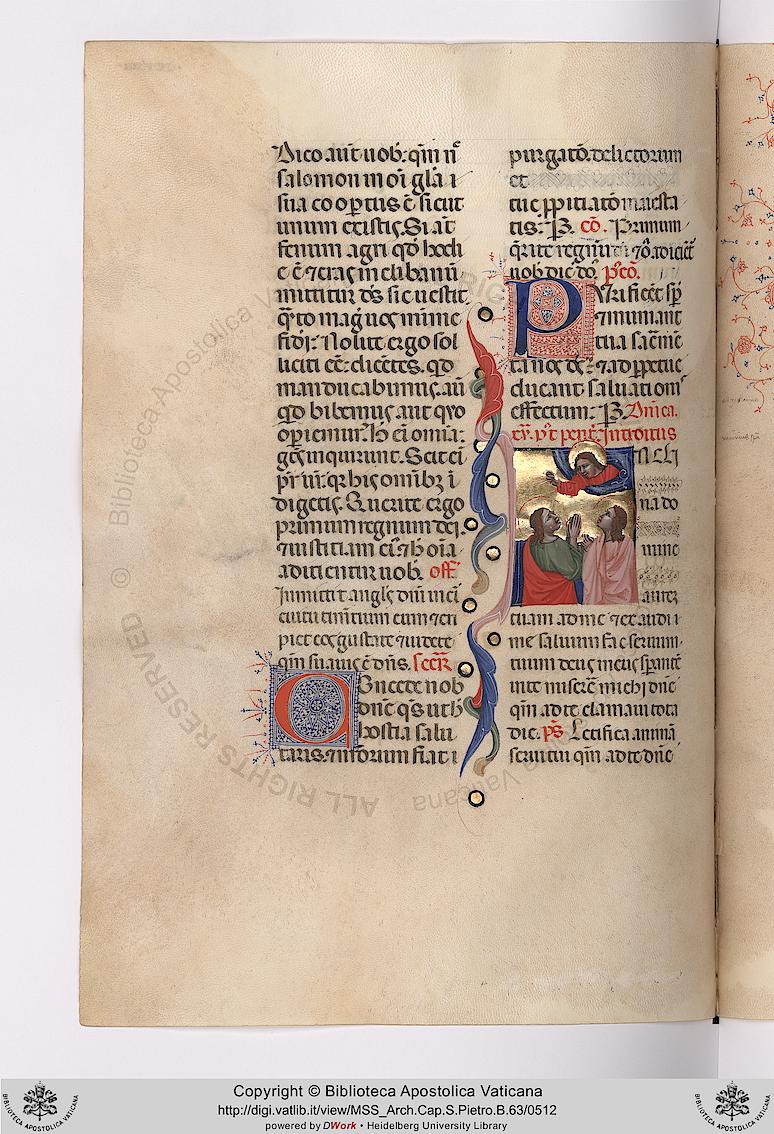 Dico aūt uob̄. qm̄ nͨ
salomon in oī gl̄a ī
sua coopertus ē sicut
unum ex istis. Si aūt
fenum agri qd̄ hodi
e ē ⁊ cras in clibanū
mittitur dͤs sic uestit
q̄nto magis uos minime
fidei. Nolite ergo sol
liciti eē. dicētes. qd̄
manducabimus. aū
qd̄ bibemus aut quo
opiemur. h̄ ei omīa.
gēs inquirunt. Scit ei
pr̄ ur̄. q̄r his omibꝫ ī
digetis. Querite ergo
primum regnum dei.
⁊ iustitiam eiꝰ ⁊ h̄ oīa
aditientur uob̄. off̄
Inmittit angl̄s dn̄i in ci
cuitu timētium eum ⁊ eri
piet eos gustate ⁊ uidete
qm̄ suauis ē dn̄s. secr̄
Concede nob̄
dn̄e qs̄ ut h̄
hostia salu
taris. ⁊ nr̄orum fiat ī
purgatō. delictorum
et
tue ꝓpitiatō maiesta
tis. P̄. cō. Primum
q̄rite regnū dī ⁊ oīa adicieēt
uob̄ dic dn̄s. p̄ cō.
Purificēt sꝑ
⁊ muniant
tua sacr̄me
ta nos ds̄. ⁊ ad ꝑpetue
ducant saluationis
effectum. P̄. Dn̄ica.
xv. p̄t pent̄. Introitus
Incli
na do
mine
aurē
tuam ad me ⁊ exaudi
me saluum fac seruum
tuum deus meus sꝑantē
in te miserē michi dn̄e
qm̄ ad te clamaui tota
die. p̄s. Letifica animā
serui tui qm̄ ad te dn̄e
© Biblioteca Apostolica Vaticana
ALL RIGHTS RESERVED
Copyright © Biblioteca Apostolica Vaticana
http://digi.vatlib.it/view/MSS_Arch.Cap.S.Pietro.B.63/0512
powered by DWork • Heidelberg University Library
BIBLIOTECA APOSTOLICA VATICANA
BIBLIOTECA APOSTOLICA VATICANA